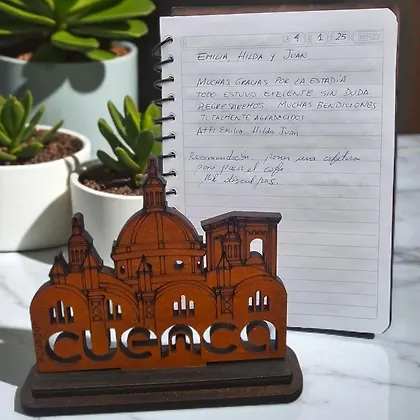 4 1 25
EMILIA, HILDA Y JUAN
MUCHAS GRACIAS POR LA ESTADÍA
TODO ESTUVO EXELENTE SIN DUDA
REGRESAREMOS. MUCHAS BENDICIONES
TOTALMENTE AGRADECIDOS
Att: Emilia Hilda Juan
Recomendación: poner una cafetera
para pasar el caffe
Mil disculpas.
cuenca